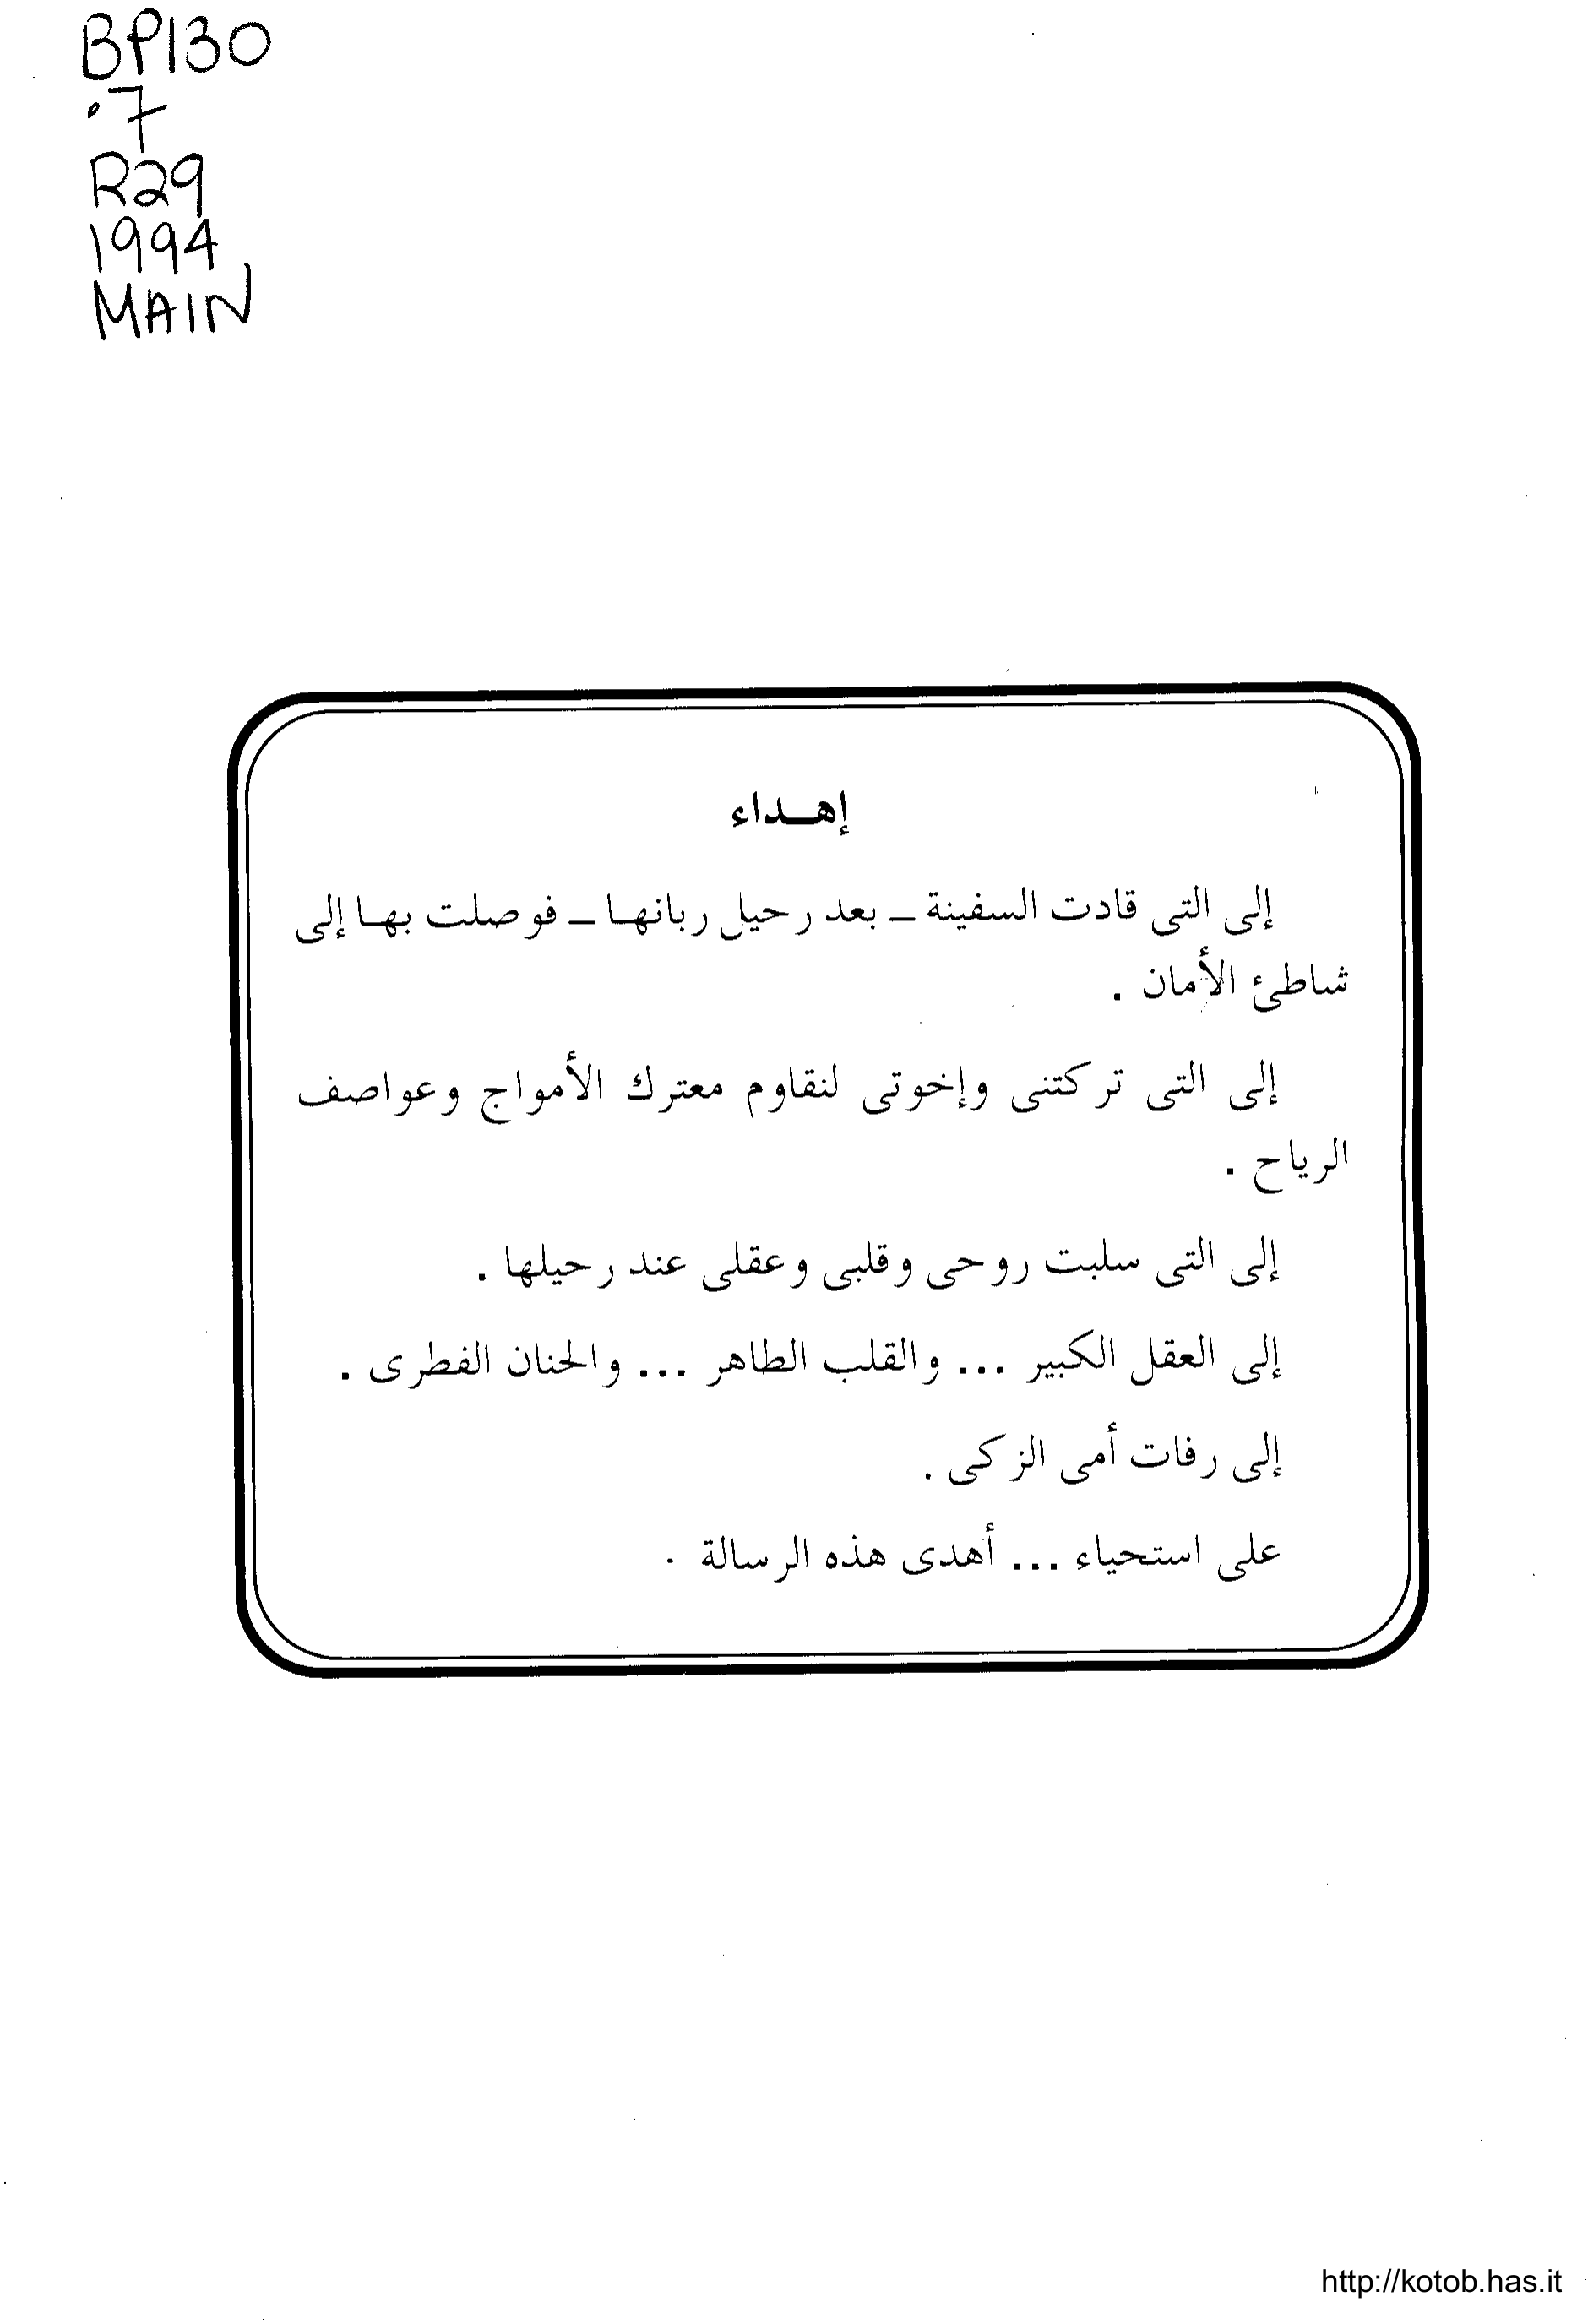 BP130
.7
R29
1994
MAIN
إهـداء
إلى التى قادت السفينة ــ بعد رحيل ربانهـا ــ فوصلت بهـا إلى
شاطئ الأمان .
إلى التى تركتنى وإخوتى لنقاوم معترك الأمواج وعواصف
الرياح .
إلى التى سلبت روحى وقلبى وعقلى عند رحيلها .
إلى العقل الكبير ... والقلب الطاهر ... والحنان الفطرى .
إلى رفات أمى الزكى .
على استحياء ... أهدى هذه الرسالة .
http://kotob.has.it